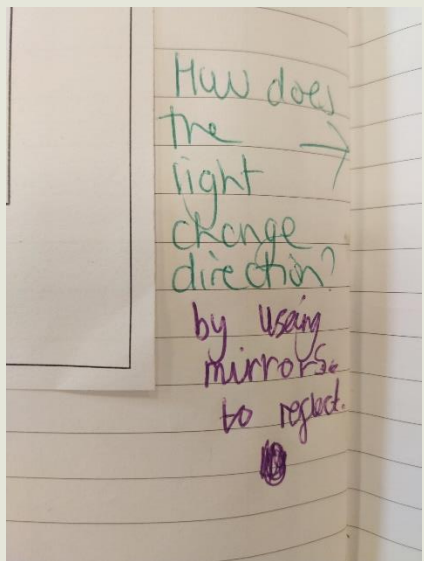 How does
the →
light
change
direction?
by useing
mirrors.
to reglect.